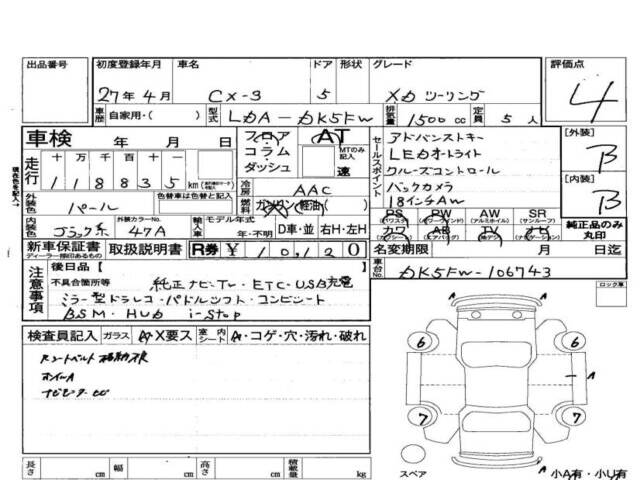 出品番号 初度登録年月 車名 ドア 形状 グレード 評価点
27年4月 CX-3 5 XDツーリング 4
車歴 自家用・( ) 型式 LDA-DK5FW 排気量 1500cc 定員 5人
車検 年 月 日 フロア コラム ダッシュ AT MTのみ記入 速
走行 十万 千 百 十
118835 km
冷房 AAC
燃料 ガソリン(軽油)
外装色 パール 色替車は色替と記入
内装色 ブラック系 外装カラーNo. 47A 輸入車 モデル年式 年・不明 D車・並 右H・左H
セールスポイント
アドバンストキー
LEDオートライト
クルーズコントロール
バックカメラ
18インチAW
PS PW AW SR
(パワステ) (パワーウインド) (アルミホイル) (サンルーフ)
カワ AB TV ナビ
(エアバッグ)
[外装] B
[内装] B
純正品のみ丸印
現在色を記入→
新車保証書 取扱説明書 R券 ¥10,120 名変期限 月 日迄
ディーラー捺印あるもの
車台No. DK5FW-106743
注意事項
後日品[ ]
不具合箇所等
純正ナビ・TV・ETC・USB充電
ミラー型ドラレコ・パドルシフト・コンビシート
BSM・HUD i-stop
ロック車
検査員記入 ガラス A・X要ス 室内シート A・コゲ・穴・汚れ・破れ
6 6
7 7
A
A
A
スペア 小A有・小U有
長さ cm 幅 cm 高さ cm 積載量 kg